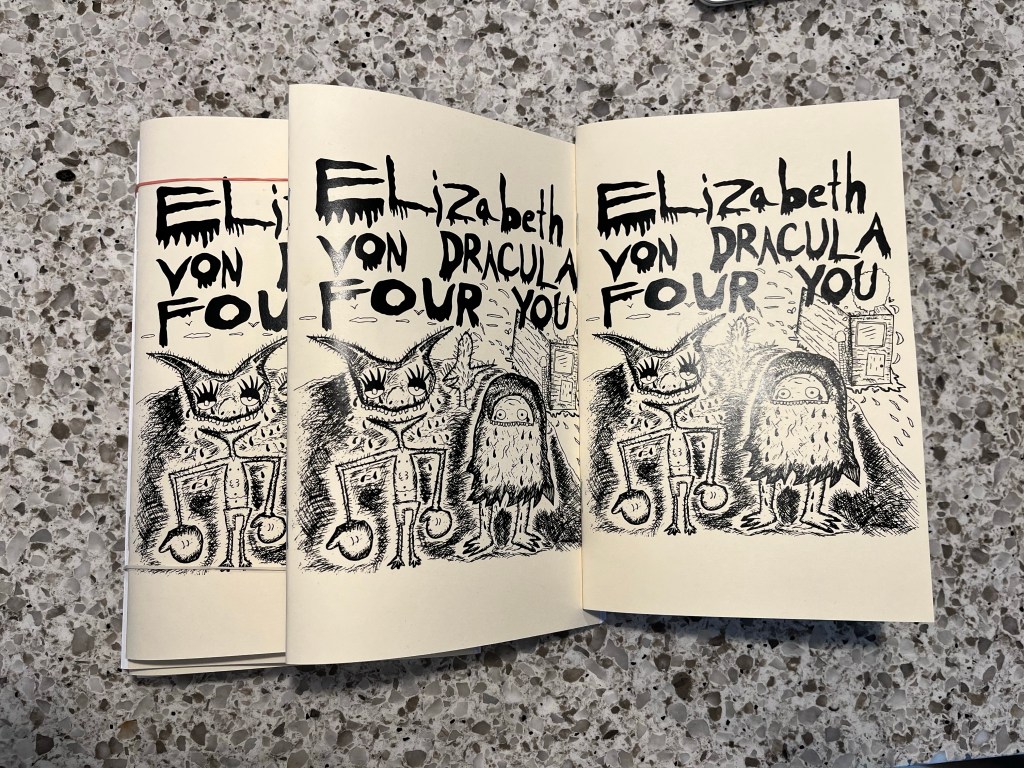 ELi
VON
FOU
ELizabeth
VON DRACULA
FOUR YOU
ELizabeth
VON DRACULA
FOUR YOU